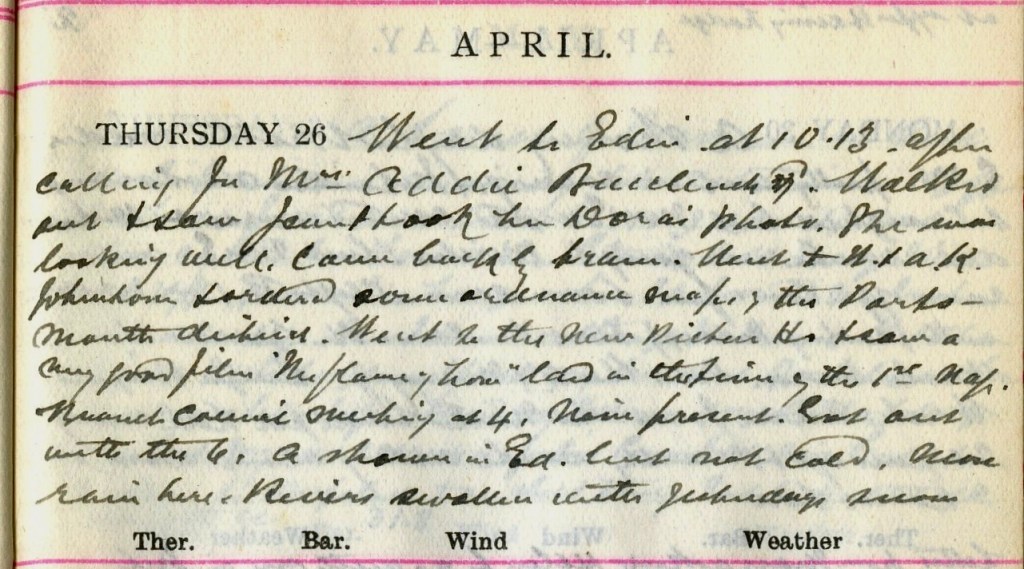 APRIL.
THURSDAY 26 Went to Edin. at 10.13 after
calling for Mrs Addie Buccleuch St. Walked
out & saw Jean & took her Dora's photo. She was
looking well. Came back by tram. Went to W. & A.K.
Johnstone & ordered some ordnance maps of the Ports-
mouth district. Went to the New Picture Ho & saw a
very good film "The flame of " laid in the time of the 1st Nap.
Branch Council meeting at 4. Nine present. Got out
with the 6. A shower in Ed. but not cold. More
rain here. Rivers swollen with yesterdays snow
Ther. Bar. Wind Weather